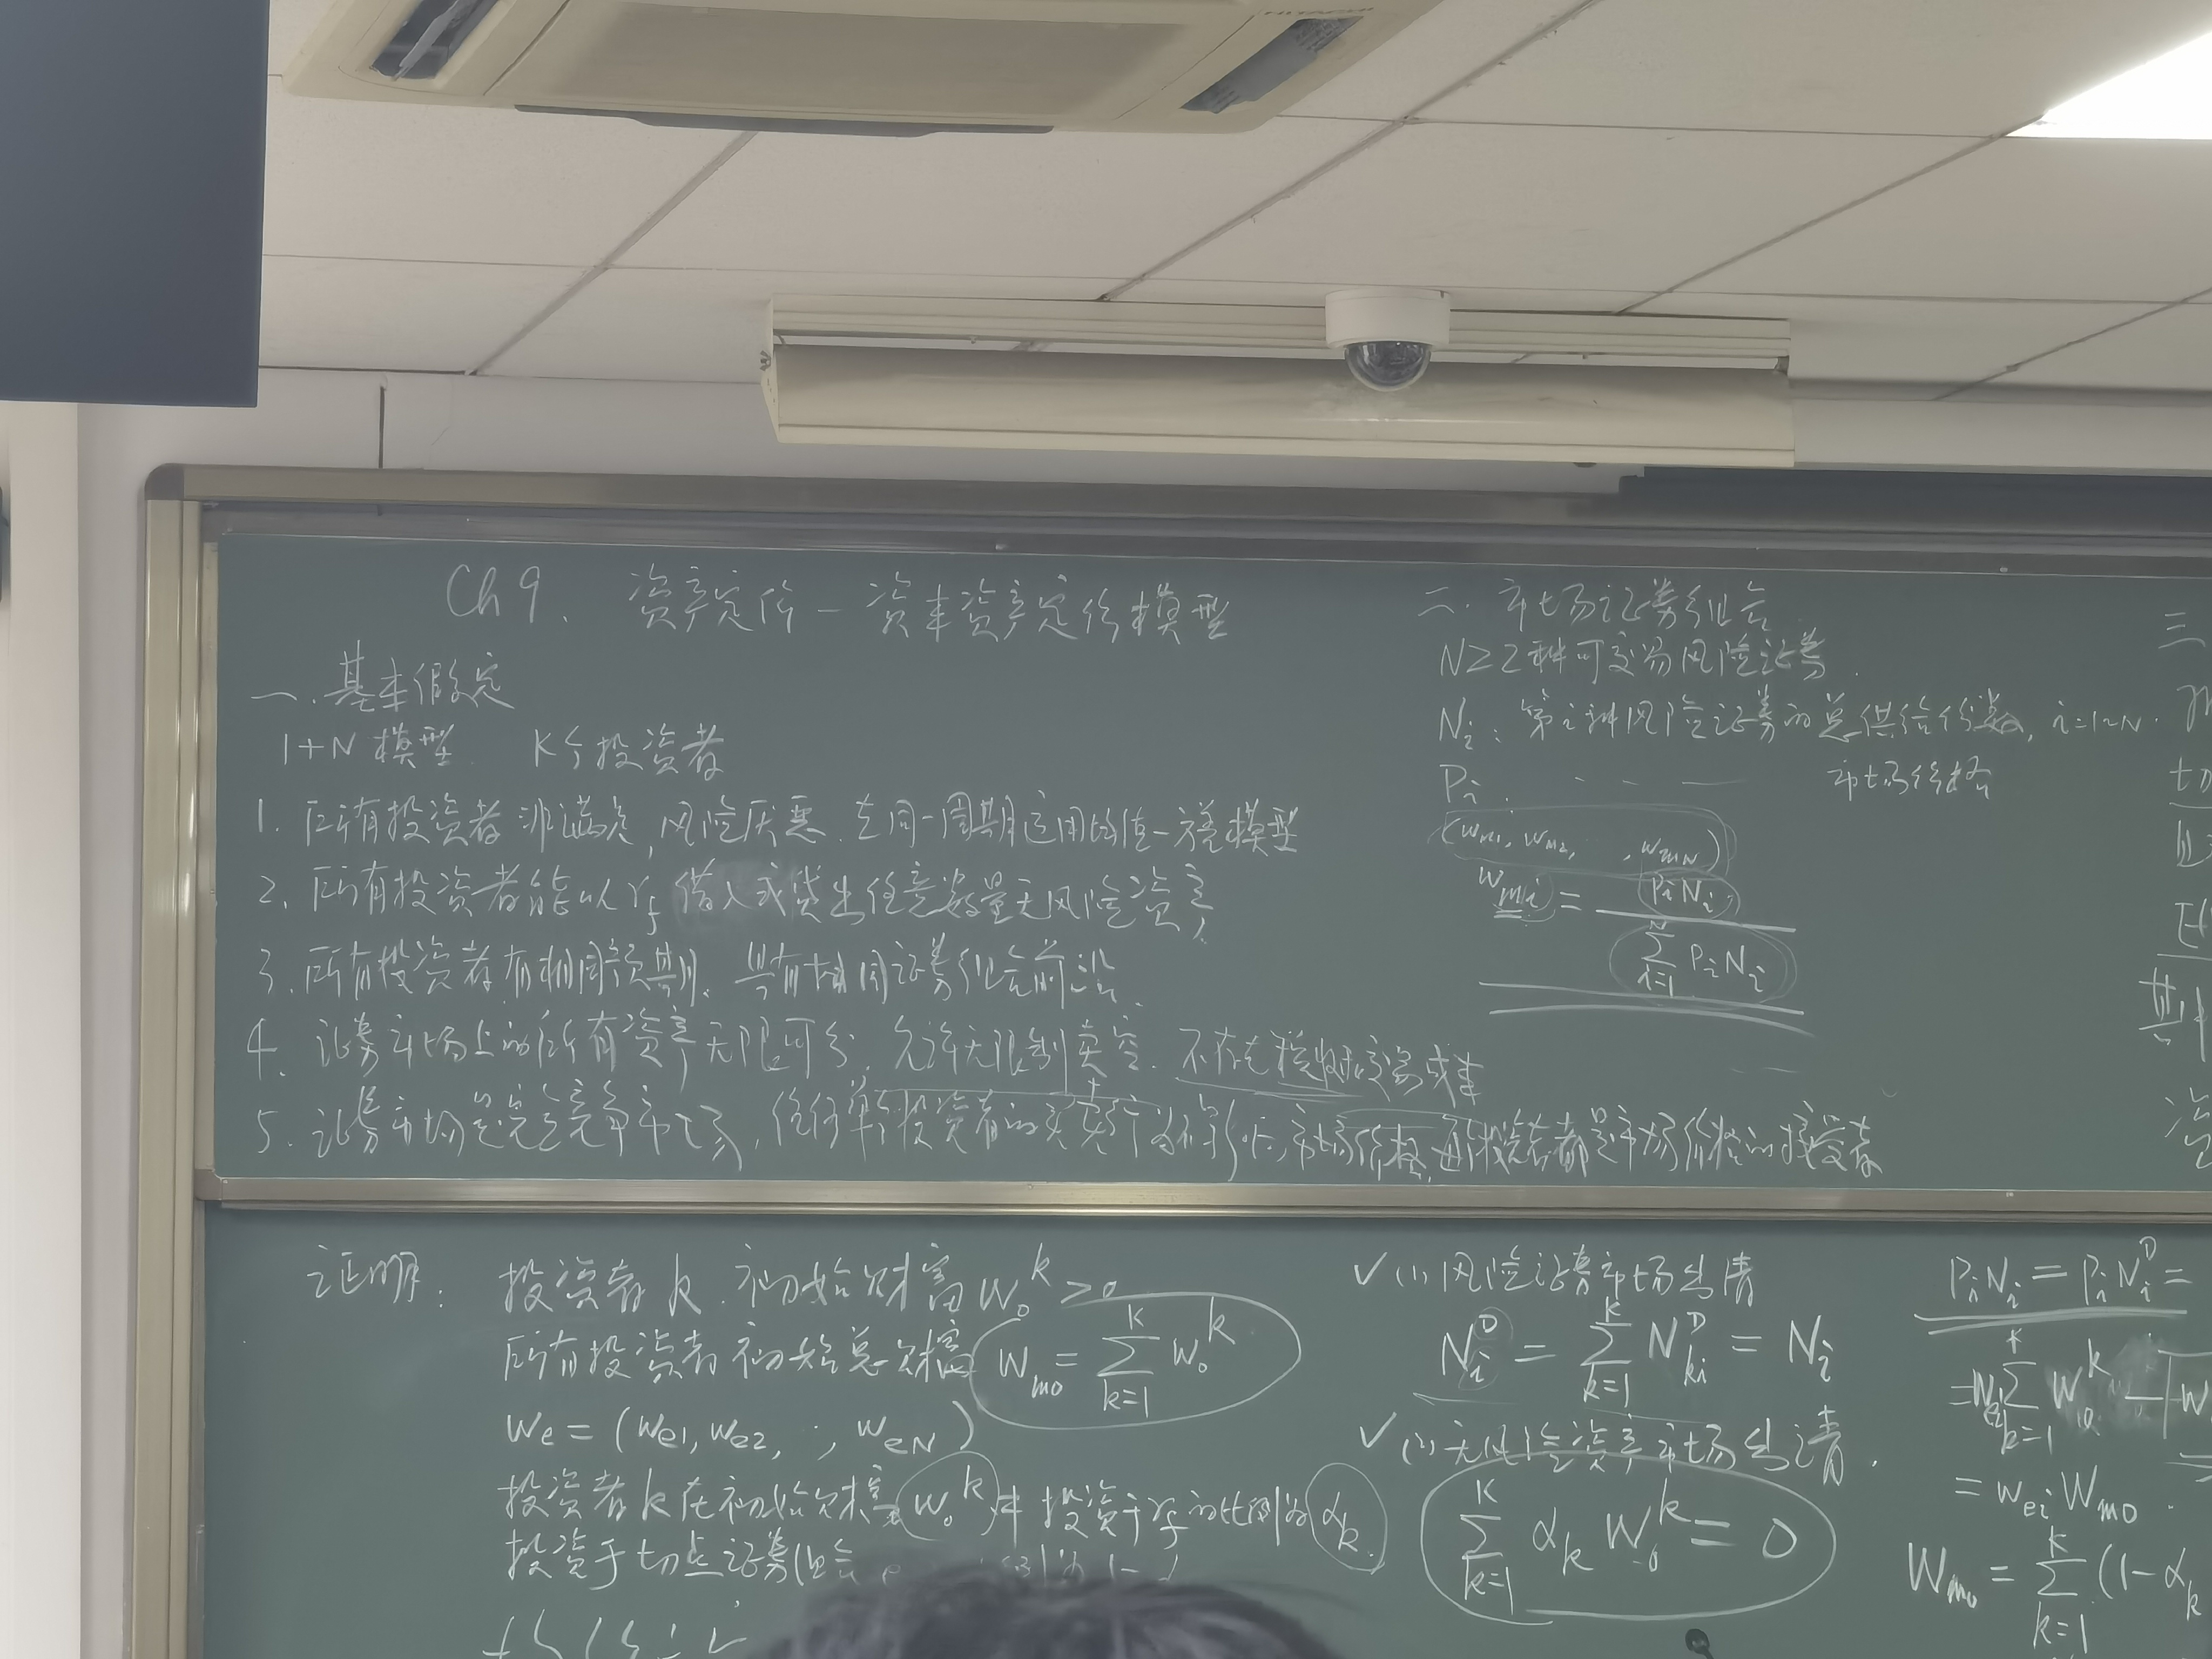 HITACHI
Ch 9. 资产定价 — 资本资产定价模型
一. 基本假定
1+N 模型. K个投资者
1. 所有投资者非满足, 风险厌恶. 在同一周期运用均值-方差模型
2. 所有投资者能以 r_f 借入或贷出任意数量无风险资产
3. 所有投资者有相同预期. 具有相同证券组合前沿.
4. 证券市场上的所有资产无限可分. 允许无限制卖空. 不存在税收和交易成本
5. 证券市场是完全竞争市场, 任何单个投资者的买卖行为不影响市场价格, 所有投资者都是市场价格的接受者
二. 市场证券组合
N≥2种可交易风险证券.
N_i: 第i种风险证券的总供给份数, i=1~N.
P_i: - - — 市场价格
(w_m1, w_m2, ..., w_mN)
w_mi = P_i N_i / ∑_{i=1}^{N} P_i N_i
三
切
证明: 投资者 k. 初始财富 W_0^k > 0
所有投资者初始总财富 W_m0 = ∑_{k=1}^{K} W_0^k
w_e = (w_e1, w_e2, ..., w_eN)
投资者k在初始财富 W_0^k 中投资于 r_f 的比例为 α_k.
投资于切点证券组合 e 1-
✓ (1) 风险证券市场出清
N_i^D = ∑_{k=1}^{K} N_ki^D = N_i
✓ (2) 无风险资产市场出清.
∑_{k=1}^{K} α_k W_0^k = 0
P_i N_i = P_i N_i^D =
= w_ei ∑_{k=1}^{K} W_0^k -
= w_ei W_m0.
W_m0 = ∑_{k=1}^{K} (1-α_k